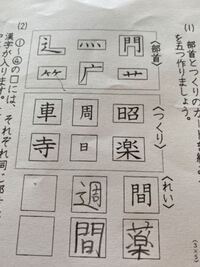 (1) 部首とつくりのカードを
を五つ作りましょう。
(3×5)
〈部首〉
門 灬 辶
艹 广 ⺮
〈つくり〉
昭 周 車
楽 日 寺
〈れい〉
間 週
薬 間
(2) ①〜④の□には、それぞれ同じ部
漢字が入ります。